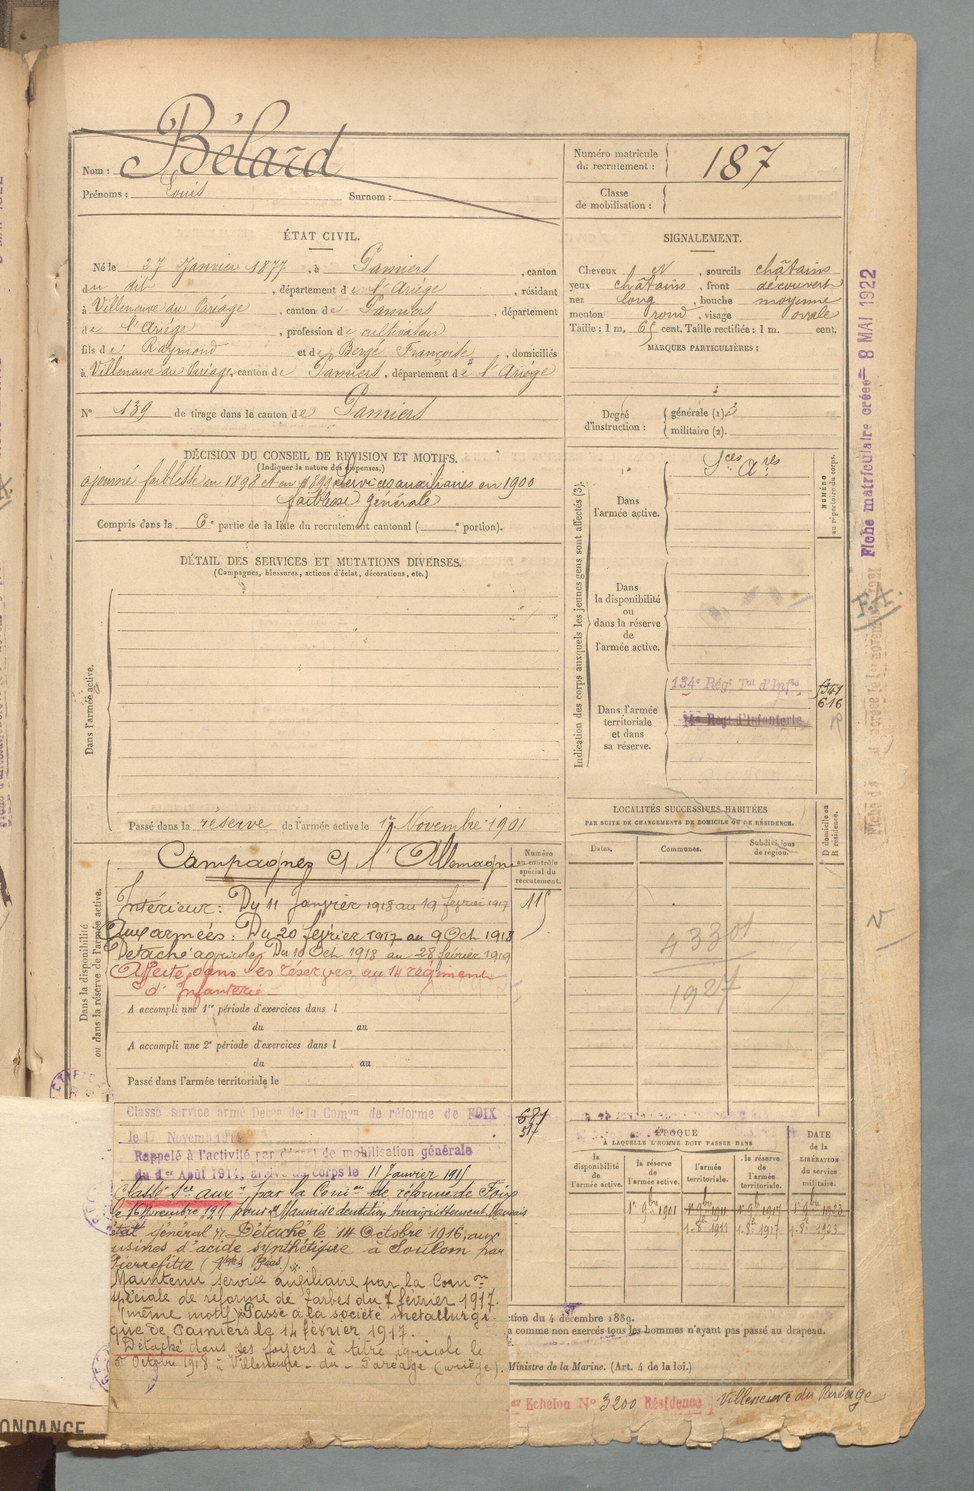 Nom : Bélard
Prénoms : Louis Surnom :
Numéro matricule du recrutement : 187
Classe de mobilisation :
ÉTAT CIVIL.
Né le 27 Janvier 1877, à Pamiers, canton
du dit, département de l'Ariège, résidant
à Villeneuve du Paréage, canton de Pamiers, département
de l'Ariège, profession de cultivateur
fils de Raymond et de Bergé Françoise, domiciliés
à Villeneuve du Paréage, canton de Pamiers, département de l'Ariège
N° 139 de tirage dans le canton de Pamiers
SIGNALEMENT.
Cheveux sourcils châtains
yeux châtains, front découvert
nez long, bouche moyenne
menton rond, visage ovale
Taille : 1 m. 65 cent. Taille rectifiée : 1 m. cent.
MARQUES PARTICULIÈRES :
Degré d'instruction : générale (1) 3
militaire (2).
DÉCISION DU CONSEIL DE REVISION ET MOTIFS.
(Indiquer la nature des dispenses.)
ajourné faiblesse en 1898 et en 1899 services auxiliaires en 1900
faiblesse générale
Compris dans la 6e partie de la liste du recrutement cantonal ( e portion).
DÉTAIL DES SERVICES ET MUTATIONS DIVERSES.
(Campagnes, blessures, actions d'éclat, décorations, etc.)
Dans l'armée active.
Passé dans la réserve de l'armée active le 1er Novembre 1901
Indication des corps auxquels les jeunes gens sont affectés (3).
Dans l'armée active.
Sces Ares
Dans la disponibilité ou dans la réserve de l'armée active.
Dans l'armée territoriale et dans sa réserve.
134e Régt Tal d'Infie
14e Régt d'Infanterie
NUMÉRO au répertoire du corps.
616
Fiche matriculaire créée 8 MAI 1922
F.A.
LOCALITÉS SUCCESSIVES HABITÉES
PAR SUITE DE CHANGEMENTS DE DOMICILE OU DE RÉSIDENCE.
Dates. Communes. Subdivisions de région. D domicile ou R résidence.
43301
1927
Dans la disponibilité ou dans la réserve de l'armée active.
Numéro au contrôle spécial du recrutement.
115
Campagnes Ct l'Allemagne
Intérieur : Du 11 Janvier 1915 au 19 février 1917
Aux armées : Du 20 février 1917 au 9 Oct 1918
Détaché agricole Du 10 Oct 1918 au 28 février 1919
Affecté dans les réserves au 14 régiment
d'Infanterie
A accompli une 1re période d'exercices dans l
du au
A accompli une 2e période d'exercices dans l
du au
Passé dans l'armée territoriale le
Classé service armé Décon de la Comon de réforme de FOIX
le 17 Novemb
Rappelé à l'activité par décret de mobilisation générale
du 1er Août 1914, arrivé au corps le 11 Janvier 1915
Classé Sce aux. par la Comon de réforme de Foix
le Novembre 1915 pour Mauvaise dentition, amaigrissement Mauvais
état général. Détaché le 14 Octobre 1916, aux
usines d'acide synthétique à Soulom par
Pierrefitte
Maintenu service auxiliaire par la Comon
spéciale de réforme de Tarbes du 7 février 1917.
(même motif) Passé à la société métallurgi
que de Pamiers le 14 février 1917.
Détaché dans ses foyers à titre agricole le
Octobre 1918 à Villeneuve-du-Paréage (Ariège).
681
ÉPOQUE
À LAQUELLE L'HOMME DOIT PASSER DANS
la disponibilité de l'armée active. la réserve de l'armée active. l'armée territoriale. la réserve de l'armée territoriale. DATE de la LIBÉRATION du service militaire.
1er 9bre 1901 1er 9bre 1911 1er 9bre 1917 1er 9bre 1923
1-8bre 1911 1-8bre 1917 1-8bre 1923
ction du 4 décembre 1889.
a comme non exercés tous les hommes n'ayant pas passé au drapeau.
Ministre de la Marine. (Art. 4 de la loi.)
er Echelon No 3200 Résidence Villeneuve du Paréage
ONDANCE